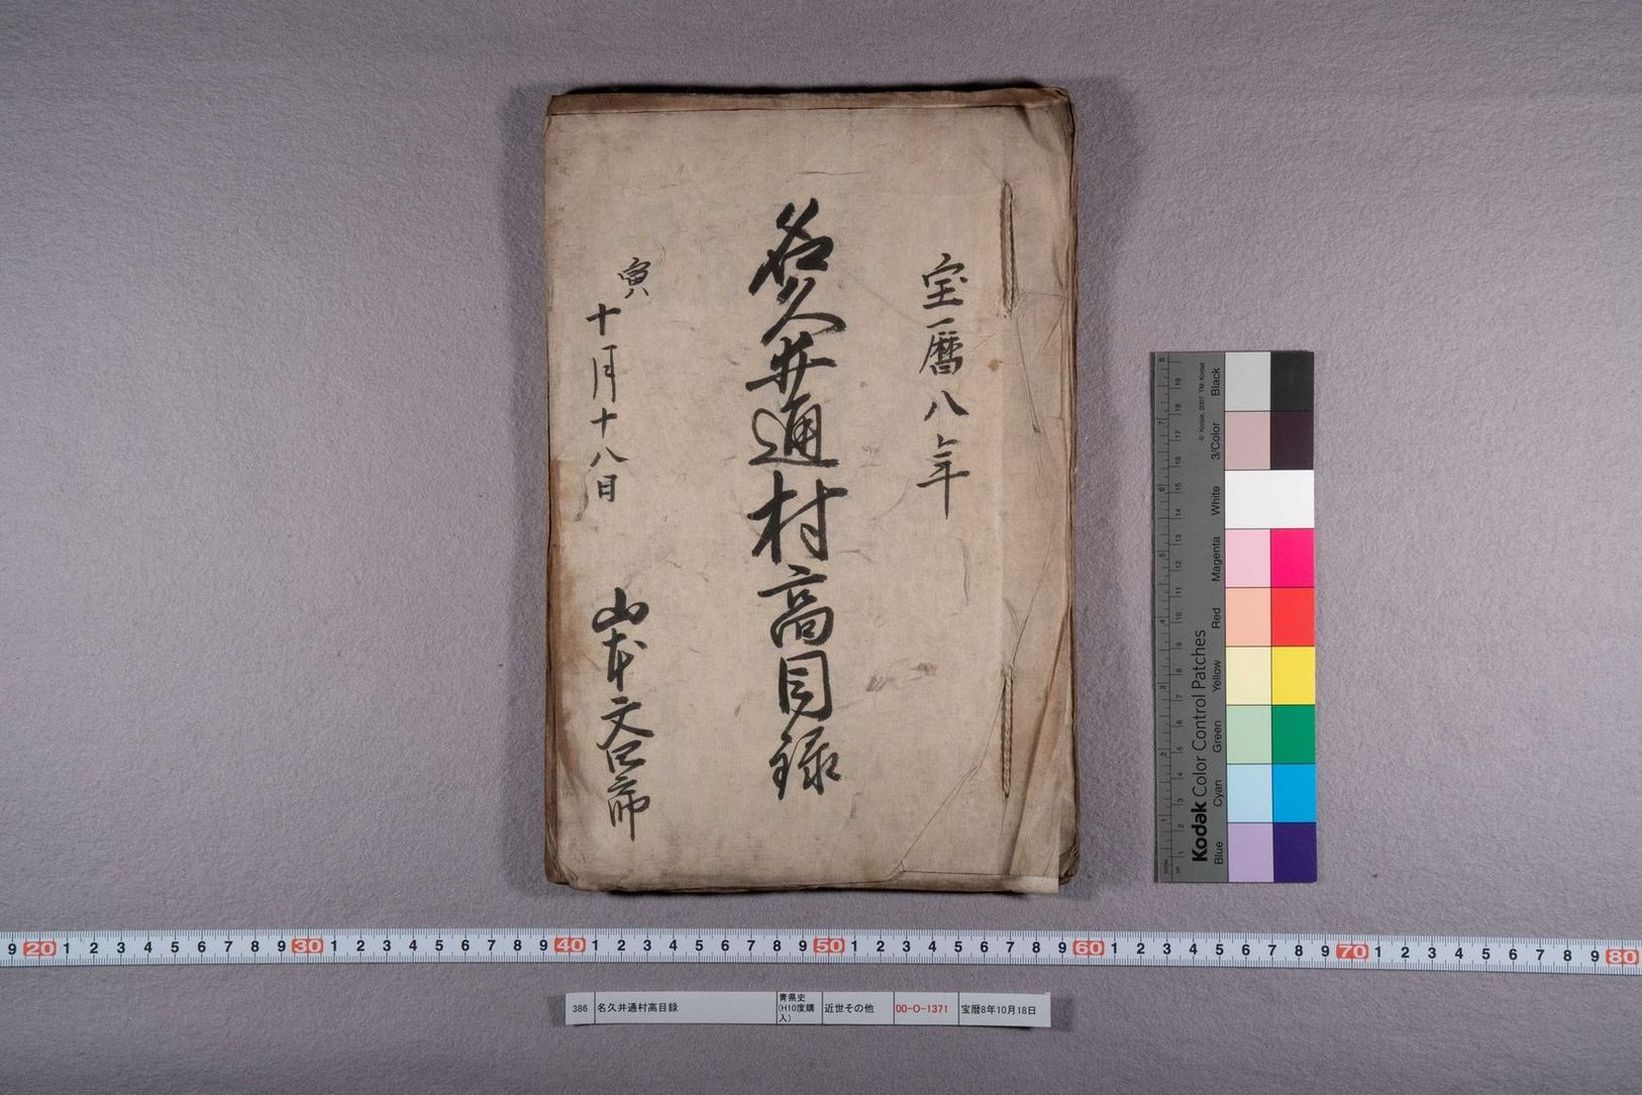 宝暦八年
名久井通村高目録
寅
十月十八日
山本文
8 19 18 7 17 16 6 15 14 5 13 12 11 4 10 9 3 8 7 6 2 5 4 3 1 2 1
© Kodak, 2007 TM: Kodak
Kodak Color Control Patches
Blue Cyan Green Yellow Red Magenta White 3/Color Black
9 20 1 2 3 4 5 6 7 8 9 30 1 2 3 4 5 6 7 8 9 40 1 2 3 4 5 6 7 8 9 50 1 2 3 4 5 6 7 8 9 60 1 2 3 4 5 6 7 8 9 70 1 2 3 4 5 6 7 8 9 80
386 名久井通村高目録 青県史(H10度購入) 近世その他 00-O-1371 宝暦8年10月18日